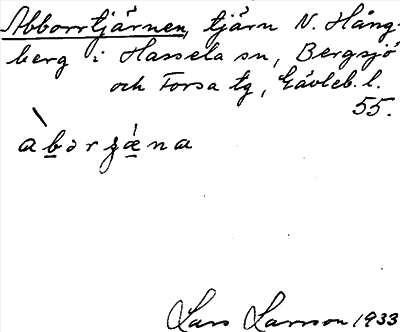 Abborrtjärnen, tjärn N. Hång-
berg i Hassela sn, Bergsjö
och Forsa tg, Gävleb. l.
55.
Lars Larsson 1933